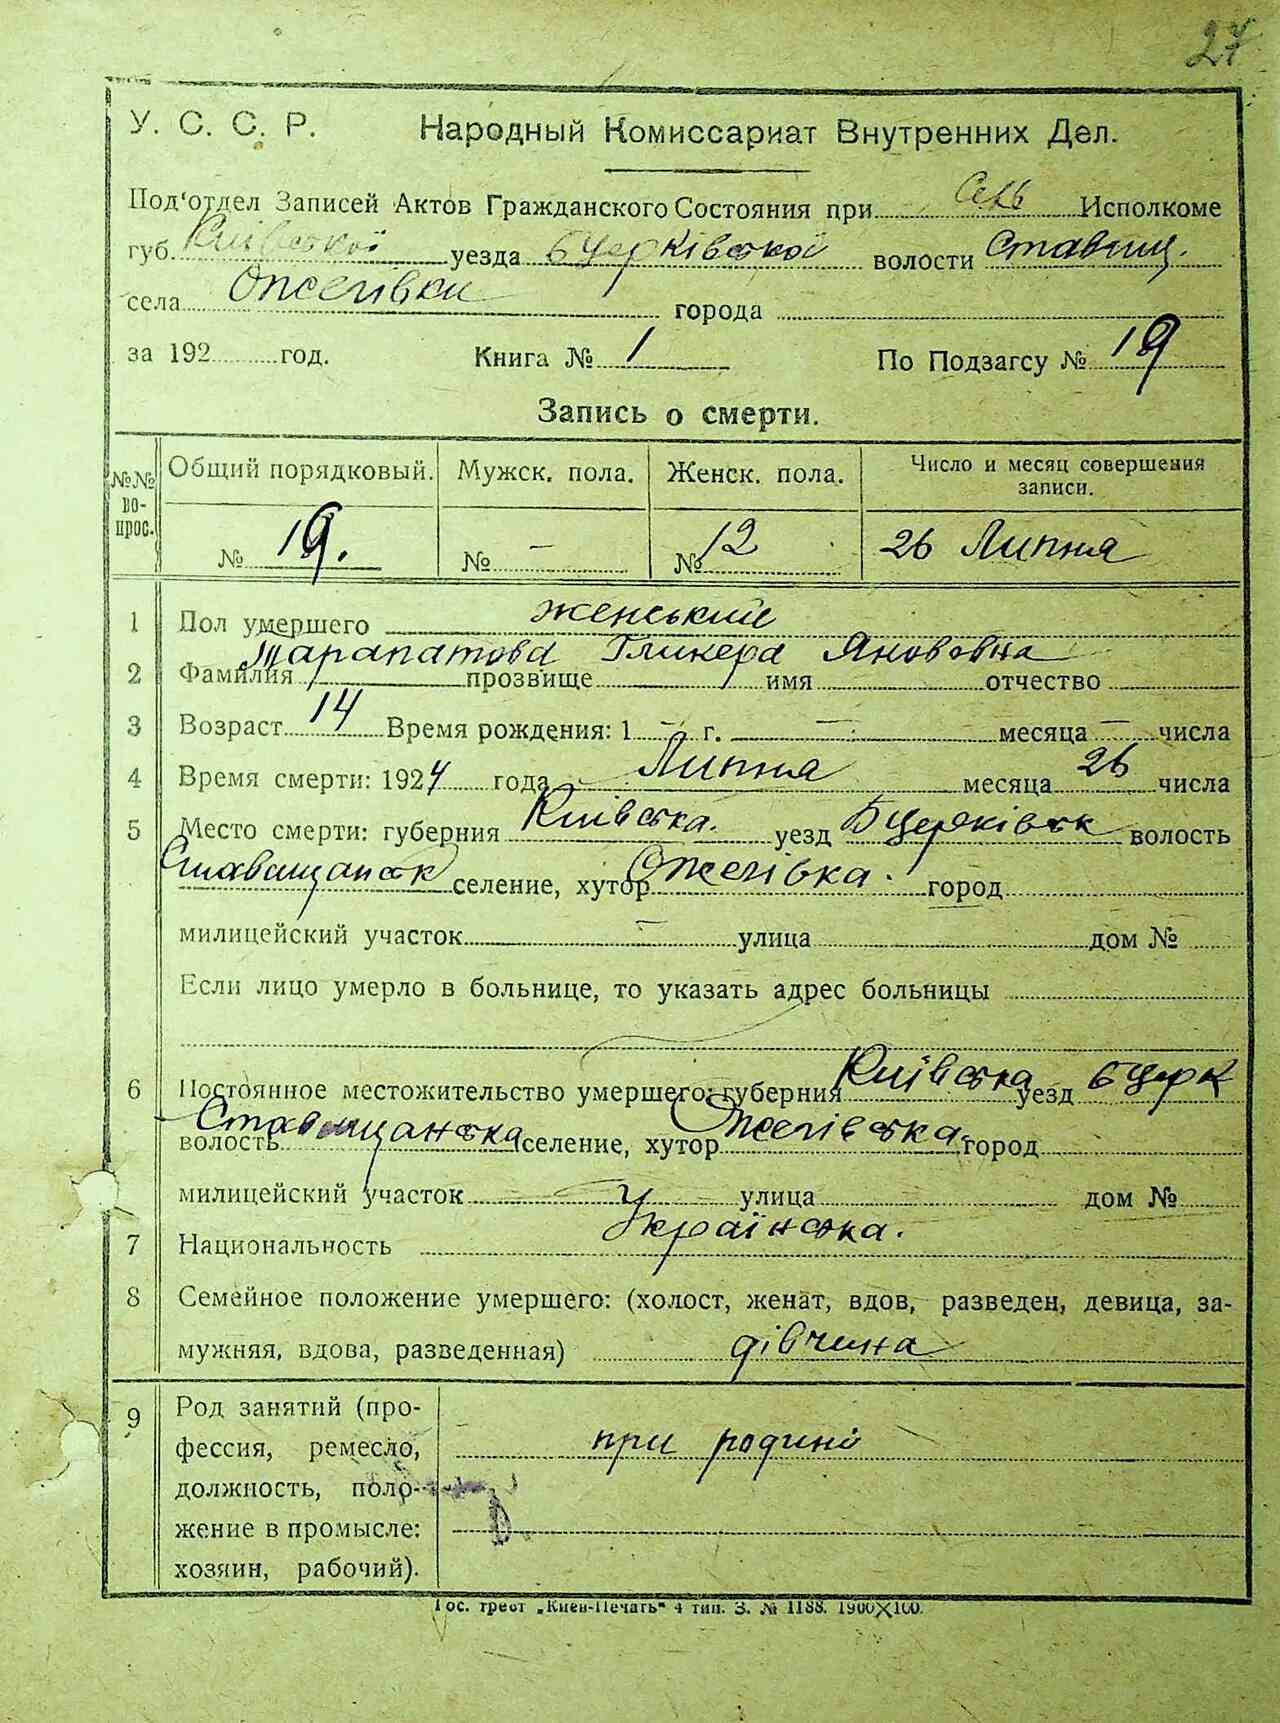 27
У. С. С. Р. Народный Комиссариат Внутренних Дел.
Под‘отдел Записей Актов Гражданского Состояния при Сель Исполкоме
губ. Київської уезда БЦерківської волости Ставищ.
села Ожегівки города
за 192 год. Книга № 1 По Подзагсу № 19
Запись о смерти.
№№ вопрос. Общий порядковый. Мужск. пола. Женск. пола. Число и месяц совершения записи.
№ 19. № — № 12 26 Липня
1 Пол умершего женський
Тарапатова Гликера Янововна
2 Фамилия прозвище имя отчество
3 Возраст 14 Время рождения: 1 — г. — месяца — числа
4 Время смерти: 1924 года Липня месяца 26 числа
5 Место смерти: губерния Київська. уезд БЦерківськ волость
Ставищанськ селение, хутор Ожегівка. город
милицейский участок — улица дом №
Если лицо умерло в больнице, то указать адрес больницы
6 Постоянное местожительство умершего: губерния Київська уезд БЦерк
волость Ставищанська селение, хутор Ожегівська. город
милицейский участок улица дом №
7 Национальность Українська.
8 Семейное положение умершего: (холост, женат, вдов, разведен, девица, за-
мужняя, вдова, разведенная) дівчина
9 Род занятий (про-
фессия, ремесло, при родині
должность, поло-
жение в промысле:
хозяин, рабочий).
Гос. трест „Киев-Печать“ 4 тип. З. № 1188. 1900×100.